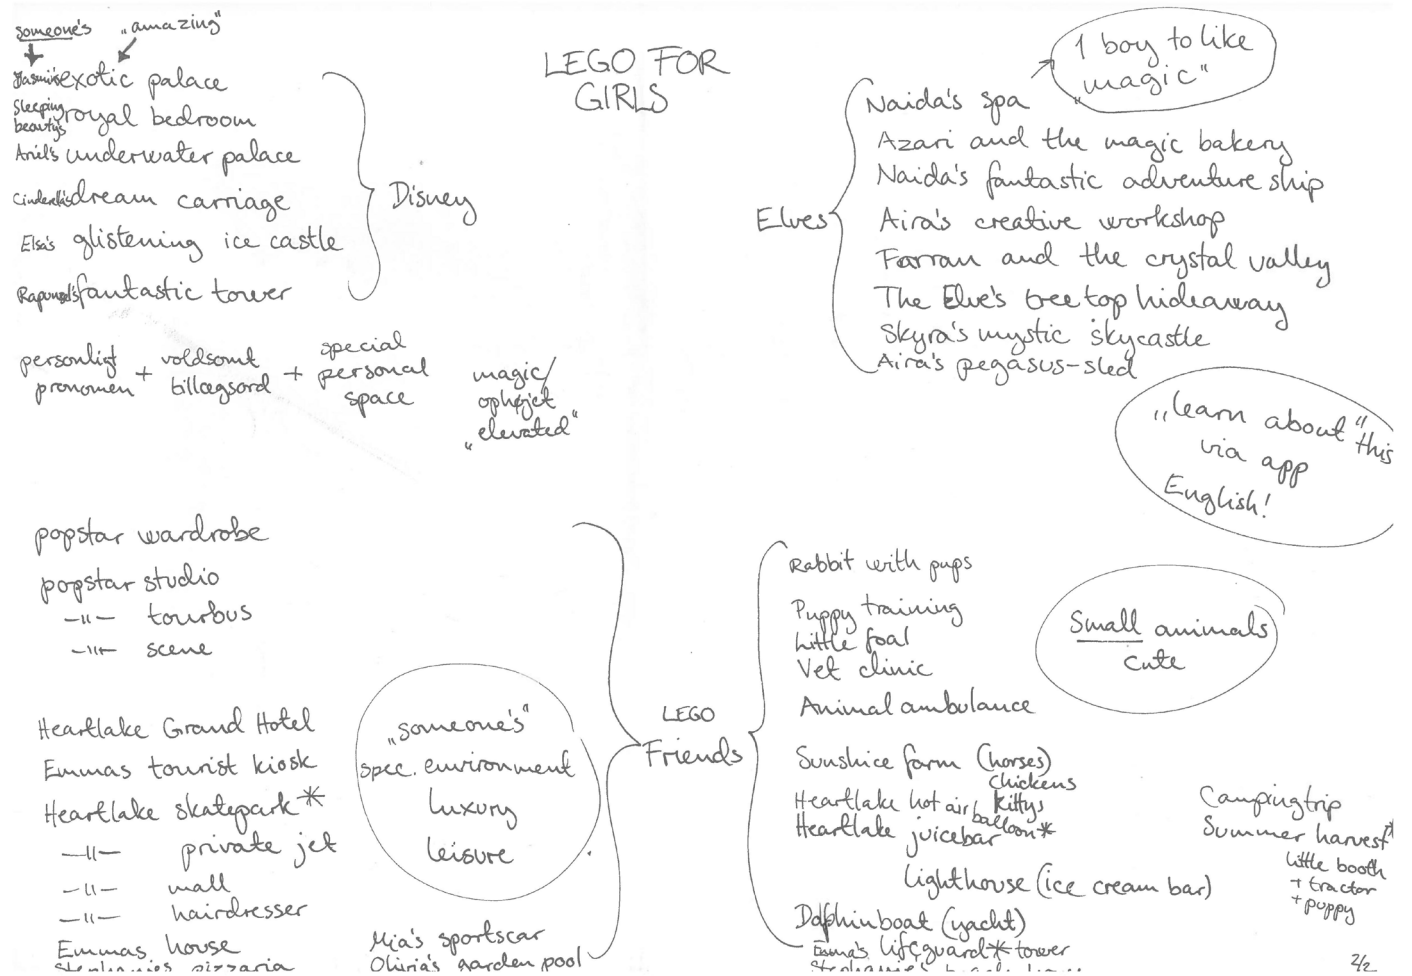 LEGO FOR
GIRLS
someone's „amazing"
Jasmin's exotic palace
Sleeping
beauty's royal bedroom
Ariel's underwater palace
Cinderella's dream carriage
Elsa's glistening ice castle
Rapunzel's fantastic tower
Disney
personligt
pronomen
+
voldsomt
tillægsord
+
special
personal
space
magic/
ophøjet
„elevated"
Elves
Naida's spa
Azari and the magic bakery
Naida's fantastic adventure ship
Aira's creative workshop
Farran and the crystal valley
The Elve's treetop hideaway
Skyra's mystic skycastle
Aira's pegasus-sled
1 boy to like
„magic"
„learn about" this
via app
English!
popstar wardrobe
popstar studio
-"- tourbus
-"- scene
Heartlake Grand Hotel
Emmas tourist kiosk
Heartlake skatepark*
-"- private jet
-"- mall
-"- hairdresser
Emmas house
Stephanies pizzaria
„someone's"
spec. environment
luxury
leisure
Mia's sportscar
Olivia's garden pool
LEGO
Friends
Rabbit with pups
Puppy training
Little foal
Vet clinic
Animal ambulance
Sunshice farm (horses)
chickens
kittys
Heartlake hot air balloon*
Heartlake juicebar
lighthouse (ice cream bar)
Dolphinboat (yacht)
Emma's lifeguard* tower
Stephanie's
Small animals
cute
Campingtrip
Summer harvest*
little booth
+ tractor
+ puppy
2/2